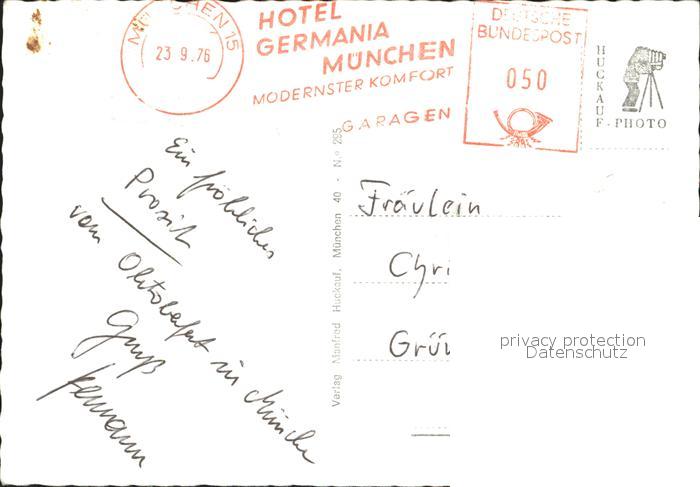 MÜNCHEN 15
23.9.76
HOTEL
GERMANIA
MÜNCHEN
MODERNSTER KOMFORT
GARAGEN
DEUTSCHE
BUNDESPOST
050
HUCKAUF-PHOTO
Ein fröhliches
Prosit
vom Oktoberfest in München
Gruß
Hermann
Verlag Manfred Huckauf, München 40 - N.º 295
Fräulein
Chri
Grün
privacy protection
Datenschutz